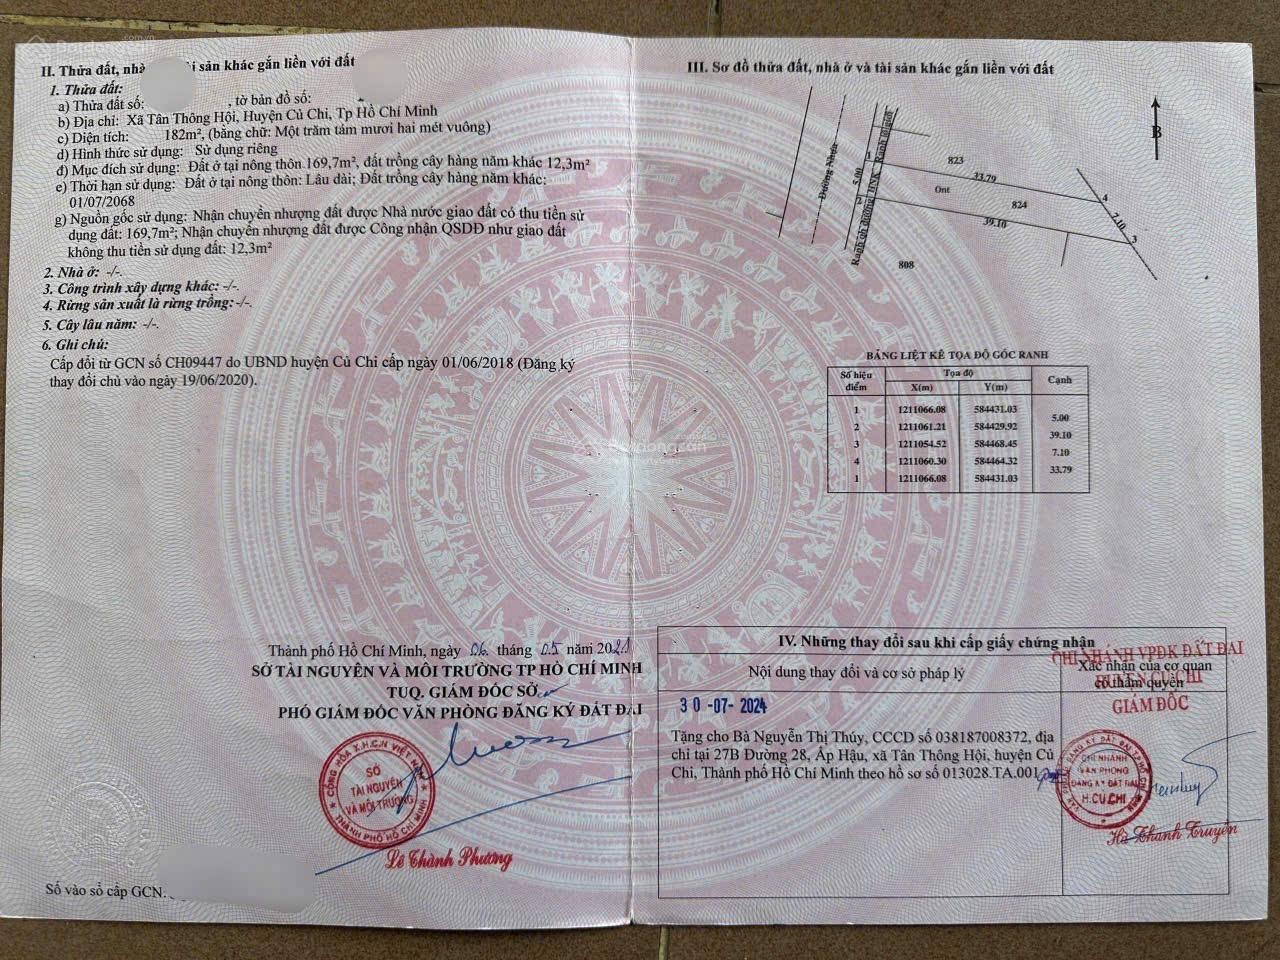 II. Thửa đất, nhà i sản khác gắn liền với đất
1. Thửa đất:
a) Thửa đất số: , tờ bản đồ số:
b) Địa chỉ: Xã Tân Thông Hội, Huyện Củ Chi, Tp Hồ Chí Minh
c) Diện tích: 182m², (bằng chữ: Một trăm tám mươi hai mét vuông)
d) Hình thức sử dụng: Sử dụng riêng
đ) Mục đích sử dụng: Đất ở tại nông thôn 169,7m², đất trồng cây hàng năm khác 12,3m²
e) Thời hạn sử dụng: Đất ở tại nông thôn: Lâu dài; Đất trồng cây hàng năm khác:
01/07/2068
g) Nguồn gốc sử dụng: Nhận chuyển nhượng đất được Nhà nước giao đất có thu tiền sử
dụng đất: 169,7m²; Nhận chuyển nhượng đất được Công nhận QSDĐ như giao đất
không thu tiền sử dụng đất: 12,3m²
2. Nhà ở: -/-.
3. Công trình xây dựng khác: -/-.
4. Rừng sản xuất là rừng trồng:-/-.
5. Cây lâu năm: -/-.
6. Ghi chú:
Cấp đổi từ GCN số CH09447 do UBND huyện Củ Chi cấp ngày 01/06/2018 (Đăng ký
thay đổi chủ vào ngày 19/06/2020).
Thành phố Hồ Chí Minh, ngày 06 tháng 05 năm 2021
SỞ TÀI NGUYÊN VÀ MÔI TRƯỜNG TP HỒ CHÍ MINH
TUQ. GIÁM ĐỐC SỞ
PHÓ GIÁM ĐỐC VĂN PHÒNG ĐĂNG KÝ ĐẤT ĐAI
CỘNG HÒA X.H.C.N VIỆT NAM
SỞ
TÀI NGUYÊN
VÀ MÔI TRƯỜNG
THÀNH PHỐ HỒ CHÍ MINH
Lê Thành Phương
Số vào sổ cấp GCN:
III. Sơ đồ thửa đất, nhà ở và tài sản khác gắn liền với đất
B
Đường Nhựa
Ranh lộ giới
Ranh qh đường
HNK
5.00
1
2
823
33.79
Ont
824
39.10
4
7.10
3
808
BẢNG LIỆT KÊ TỌA ĐỘ GÓC RANH
Số hiệu điểm Tọa độ Cạnh
X(m) Y(m)
1 1211066.08 584431.03
5.00
2 1211061.21 584429.92
39.10
3 1211054.52 584468.45
7.10
4 1211060.30 584464.32
33.79
1 1211066.08 584431.03
IV. Những thay đổi sau khi cấp giấy chứng nhận
Nội dung thay đổi và cơ sở pháp lý
Xác nhận của cơ quan
có thẩm quyền
CHI NHÁNH VPĐK ĐẤT ĐAI
HUYỆN CỦ CHI
GIÁM ĐỐC
30-07-2024
Tặng cho Bà Nguyễn Thị Thúy, CCCD số 038187008372, địa
chỉ tại 27B Đường 28, Ấp Hậu, xã Tân Thông Hội, huyện Củ
Chi, Thành phố Hồ Chí Minh theo hồ sơ số 013028.TA.001
CHI NHÁNH
VĂN PHÒNG
ĐĂNG KÝ ĐẤT ĐAI
H.CỦ CHI
Hà Thanh Truyền
Batdongsan